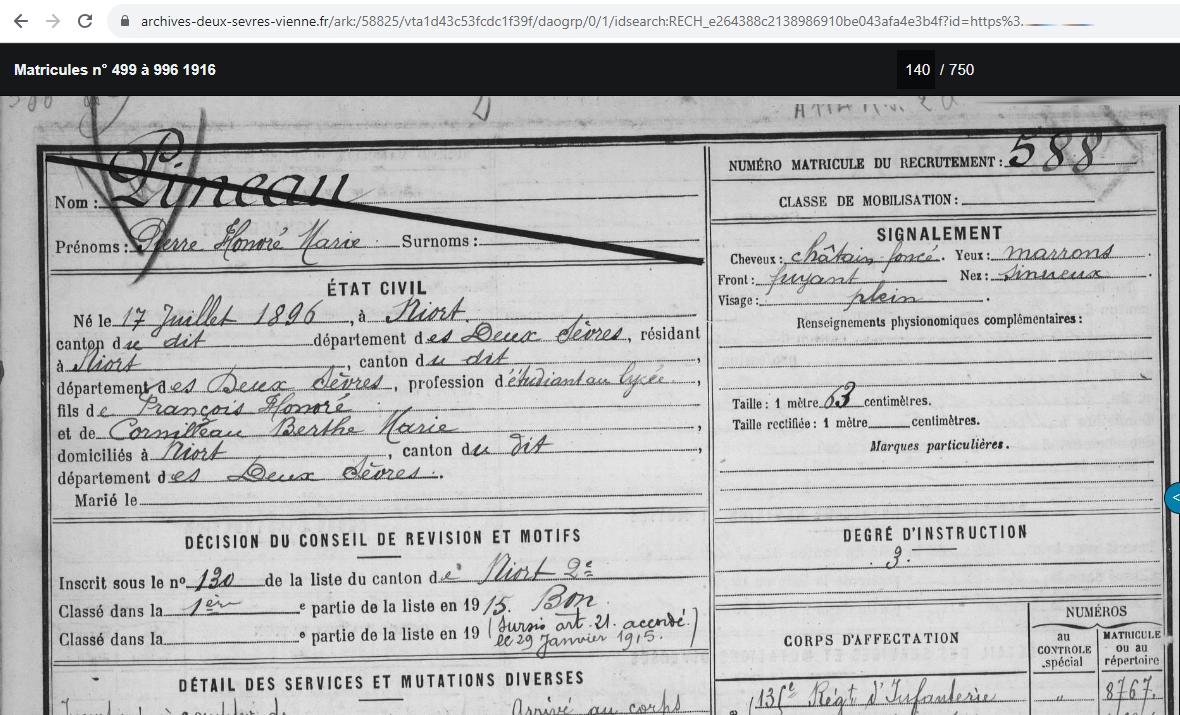 archives-deux-sevres-vienne.fr/ark:/58825/vta1d43c53fcdc1f39f/daogrp/0/1/idsearch:RECH_e264388c2138986910be043afa4e3b4f?id=https%3.
Matricules n° 499 à 996 1916
140 / 750
Nom : Pineau
Prénoms : Pierre Honoré Marie Surnoms :
ÉTAT CIVIL
Né le 17 Juillet 1896, à Niort
canton du dit département des Deux Sèvres, résidant
à Niort, canton du dit,
département des Deux Sèvres, profession d'étudiant au lycée,
fils de François Honoré
et de Cornilleau Berthe Marie,
domiciliés à Niort, canton du dit,
département des Deux Sèvres.
Marié le
DÉCISION DU CONSEIL DE REVISION ET MOTIFS
Inscrit sous le n° 130 de la liste du canton de Niort 2e
Classé dans la 1ère e partie de la liste en 1915. Bon
Classé dans la e partie de la liste en 19 (Sursis art. 21. accordé.
le 29 Janvier 1915.)
DÉTAIL DES SERVICES ET MUTATIONS DIVERSES
Arrivé au corps
NUMÉRO MATRICULE DU RECRUTEMENT : 588
CLASSE DE MOBILISATION :
SIGNALEMENT
Cheveux : châtain foncé. Yeux : marrons.
Front : fuyant Nez : sinueux.
Visage : plein.
Renseignements physionomiques complémentaires :
Taille : 1 mètre 63 centimètres.
Taille rectifiée : 1 mètre centimètres.
Marques particulières.
DEGRÉ D'INSTRUCTION
3.
CORPS D'AFFECTATION
NUMÉROS
au CONTROLE spécial
MATRICULE ou au répertoire
Régt d'Infanterie " 8767.